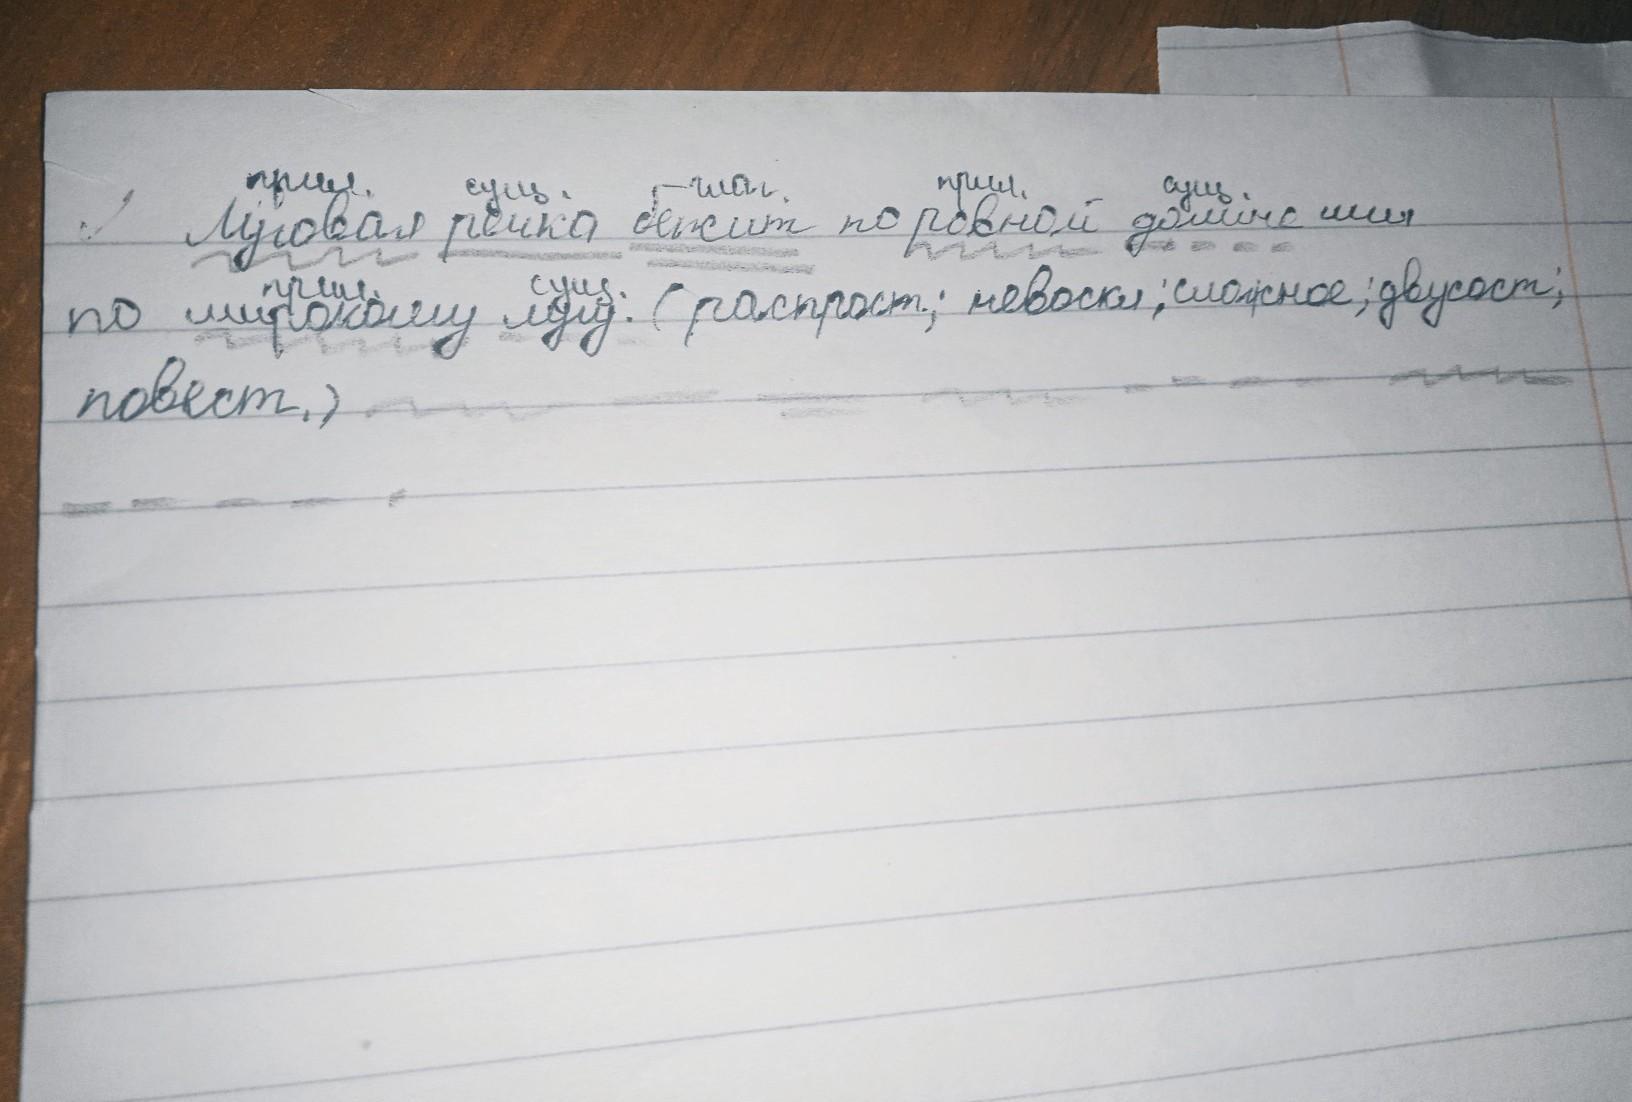 прил. сущ. глаг. прил. сущ.
Луговая речка бежит по ровной долине или
прил. сущ.
по широкому лугу. (распрост.; невоскл; сложное; двусост;
повест.)